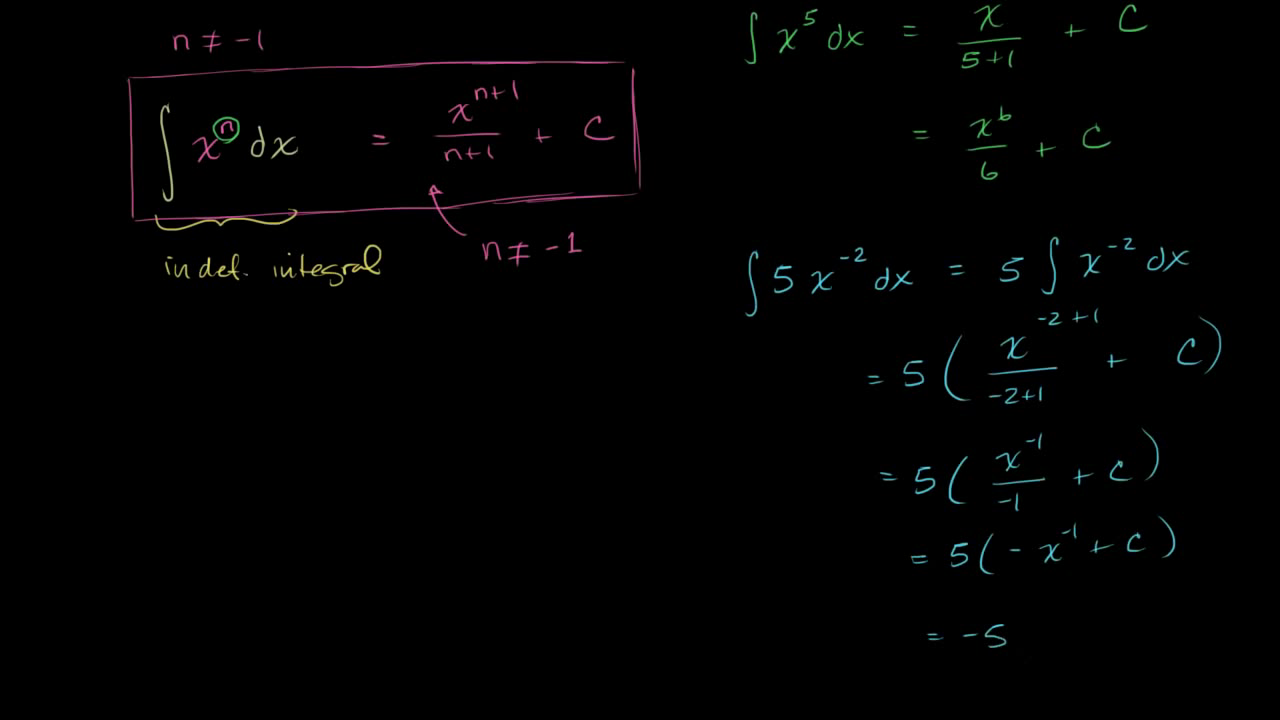 n ≠ -1
∫ xⁿ dx = xⁿ⁺¹/n+1 + C
n ≠ -1
indef. integral
∫ x⁵ dx = x/5+1 + C
= x⁶/6 + C
∫ 5 x⁻² dx = 5 ∫ x⁻² dx
= 5 ( x⁻²⁺¹/-2+1 + C )
= 5 ( x⁻¹/-1 + C )
= 5 ( - x⁻¹ + C )
= -5